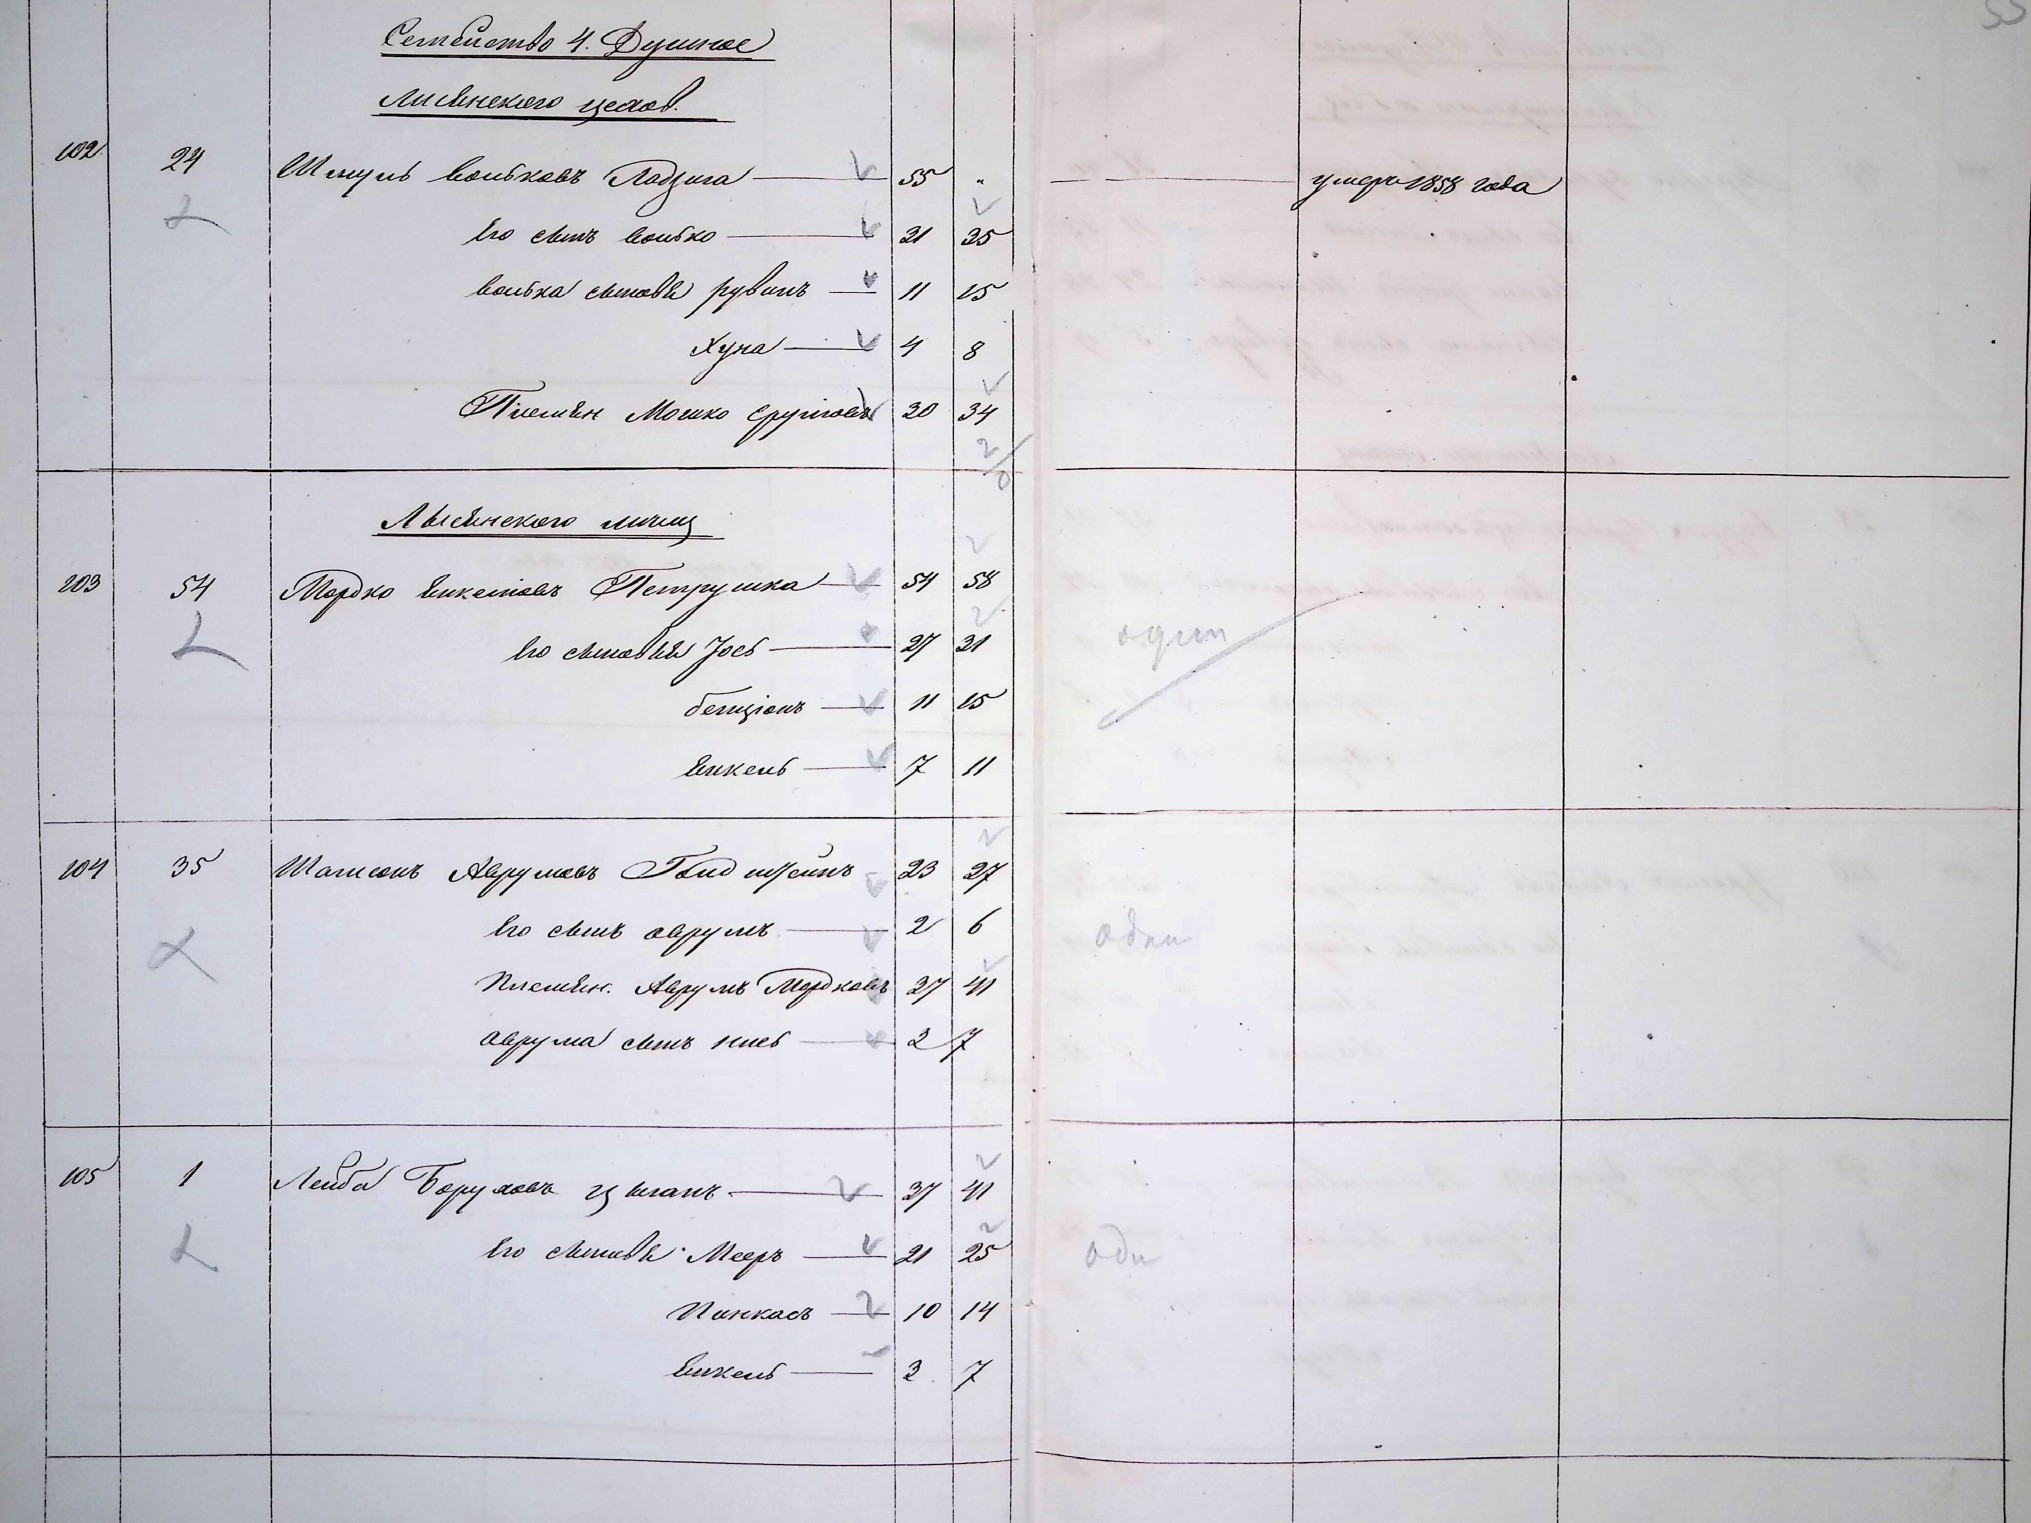 55
Семейство 4. Душное
Лисянского цехов.
102 24 Шмуль Вольковъ Ладыга 55 „ умеръ 1858 года
Его сынъ Волько 31 35
Волька сыновья Рувинъ 11 15
Хуна 4 8
Племян Мошко Сруліовъ 30 34
2/0
Лысянского мѣщ
103 54 Мордко Янкеліовъ Петрушка 54 58
Его сыновья Іось 27 31 один
Бенціонъ 11 15
Янкель 7 11
104 35 Шамсонъ Аврумовъ Гольдштейнъ 23 27
Его сынъ Аврумъ 2 6 один
Племян. Аврумъ Мордковъ 37 41
Аврума сынъ 3 7
105 1 Лейба Боруховъ Цыганъ 37 41
Его сыновья Мееръ 21 25 оди
Пинкасъ 10 14
Янкель 3 7